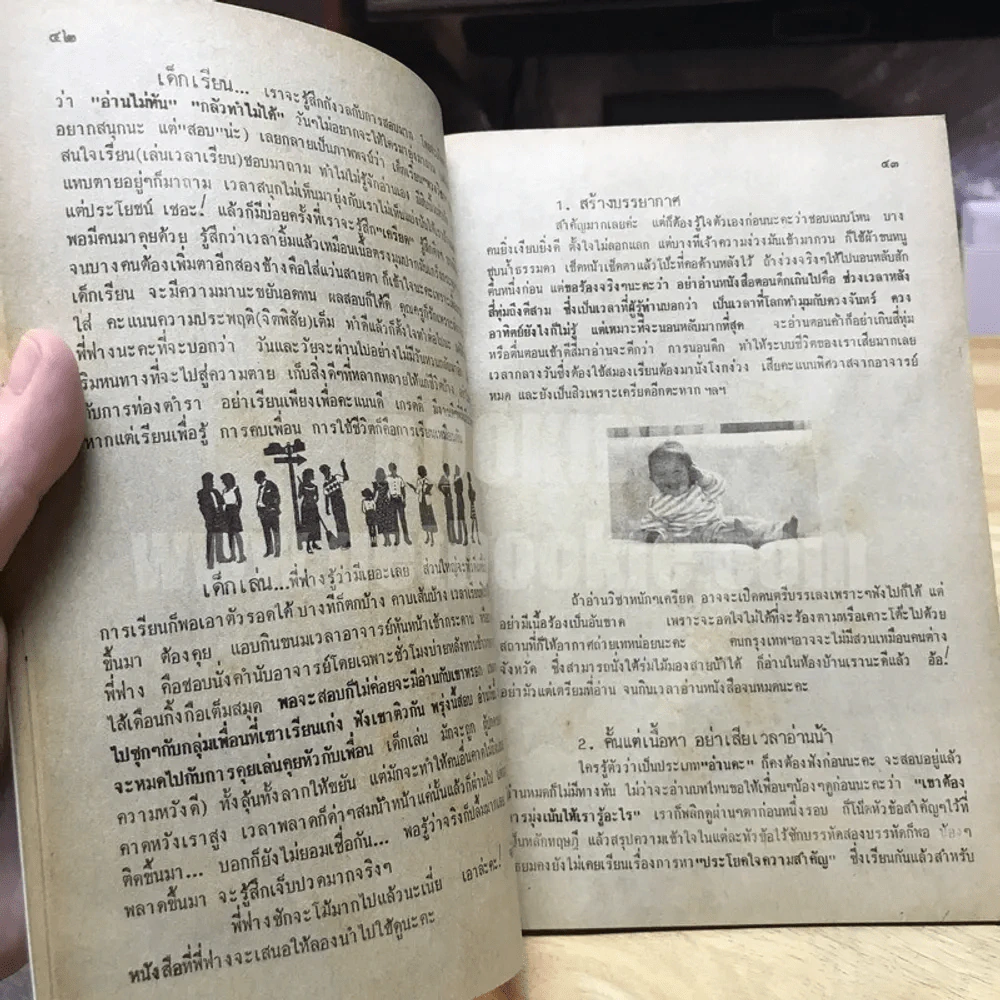 ๔๒
เด็กเรียน... เราจะรู้สึกกังวลกับการสอบมาก
ว่า "อ่านไม่ทัน" "กลัวทำไม่ได้" วันๆไม่อยากจะให้ใครมายุ่ง
อยากสนุกนะ แต่"สอบ"น่ะ) เลยกลายเป็นภาพพจน์ว่า เด็กเรียน
สนใจเรียน(เล่นเวลาเรียน)ชอบมาถาม ทำไมไม่รู้จักอ่านเอง
แทบตายอยู่ๆก็มาถาม เวลาสนุกไม่เห็นมายุ่งกับเราไม่เห็นแบ่งกันไป
แต่ประโยชน์ เชอะ! แล้วก็มีบ่อยครั้งที่เราจะรู้สึก"เครียด"
พอมีคนมาคุยด้วย รู้สึกว่าเวลายิ้มแล้วเหมือนเนื้อตรงมุมปาก
จนบางคนต้องเพิ่มตาอีกสองข้างคือใส่แว่นสายตา ก็เข้าใจนะคะ
เด็กเรียน จะมีความมานะขยันอดทน ผลสอบก็ได้ดี คุณครูก็รัก
ใส่ คะแนนความประพฤติ(จิตพิสัย)เต็ม ทำดีแล้วก็ตั้งใจทำต่อไป
พี่ฟางนะคะที่จะบอกว่า วันและวัยจะผ่านไปอย่างไม่มีวันหวนกลับ
ริมหนทางที่จะไปสู่ความตาย เก็บสิ่งดีๆที่หลากหลายให้แก่ชีวิตบ้าง
กับการท่องตำรา อย่าเรียนเพียงเพื่อคะแนนดี เกรดดี
หากแต่เรียนเพื่อรู้ การคบเพื่อน การใช้ชีวิตก็คือการเรียนเหมือนกัน
เด็กเล่น...พี่ฟางรู้ว่ามีเยอะเลย ส่วนใหญ่จะ
การเรียนก็พอเอาตัวรอดได้ บางทีก็ตกบ้าง คาบเส้นบ้าง
ขึ้นมา ต้องคุย แอบกินขนมเวลาอาจารย์หันหน้าเข้ากระดาน
พี่ฟาง คือชอบนั่งคำนับอาจารย์โดยเฉพาะชั่วโมงบ่ายหลังทานข้าว
ไส้เดือนกิ้งกือเต็มสมุด พอจะสอบก็ไม่ค่อยจะมีอ่านกับเขาหรอก
ไปซุกๆกับกลุ่มเพื่อนที่เขาเรียนเก่ง ฟังเขาติวกัน พรุ่งนี้สอบ
จะหมดไปกับการคุยเล่นคุยหัวกับเพื่อน เด็กเล่น มักจะถูก
ความหวังดี) ทั้งลุ้นทั้งลากให้ขยัน แต่มักจะทำให้คนอื่นคาดไม่ถึง
คาดหวังเราสูง เวลาพลาดก็ด่าๆสมน้ำหน้าแค่นั้นแล้วก็ผ่านไป
ติดขึ้นมา... บอกก็ยังไม่ยอมเชื่อกัน... พอรู้ว่าจริงก็ปลื้มมากเลย
พลาดขึ้นมา จะรู้สึกเจ็บปวดมากจริงๆ
พี่ฟางชักจะโม้มากไปแล้วนะเนี่ย เอาล่ะค่ะ!
หนังสือที่พี่ฟางจะเสนอให้ลองนำไปใช้ดูนะคะ
๔๓
1. สร้างบรรยากาศ
สำคัญมากเลยค่ะ แต่ก็ต้องรู้ใจตัวเองก่อนนะคะว่าชอบแบบไหน บาง
คนยิ่งเงียบยิ่งดี ตั้งใจไม่ลอกแลก แต่บางทีเจ้าความง่วงมันเข้ามากวน ก็ใช้ผ้าขนหนู
ชุบน้ำธรรมดา เช็ดหน้าเช็ดตาแล้วโป๊ะที่คอด้านหลังไว้ ถ้าง่วงจริงๆให้ไปนอนหลับสัก
ตื่นหนึ่งก่อน แต่ขอร้องจริงๆนะคะว่า อย่าอ่านหนังสือตอนดึกเกินไปคือ ช่วงเวลาหลัง
สี่ทุ่มถึงตีสาม ซึ่งเป็นเวลาที่ผู้รู้ท่านบอกว่า เป็นเวลาที่โลกทำมุมกับดวงจันทร์ ดวง
อาทิตย์ยังไงก็ไม่รู้ แต่เหมาะที่จะนอนหลับมากที่สุด จะอ่านตอนค่ำก็อย่าเกินสี่ทุ่ม
หรือตื่นตอนเช้าตีสี่มาอ่านจะดีกว่า การนอนดึก ทำให้ระบบชีวิตของเราเสียมากเลย
เวลากลางวันซึ่งต้องใช้สมองเรียนต้องมานั่งโงกง่วง เสียคะแนนพิศวาสจากอาจารย์
หมด และยังเป็นสิวเพราะเครียดอีกตะหาก ฯลฯ
ถ้าอ่านวิชาหนักๆเครียด อาจจะเปิดดนตรีบรรเลงเพราะๆฟังไปก็ได้ แต่
อย่ามีเนื้อร้องเป็นอันขาด เพราะจะอดใจไม่ได้ที่จะร้องตามหรือเคาะโต๊ะไปด้วย
สถานที่ก็ให้อากาศถ่ายเทหน่อยนะคะ คนกรุงเทพฯอาจจะไม่มีสวนเหมือนคนต่าง
จังหวัด ซึ่งสามารถนั่งใต้ร่มไม้มองสายน้ำได้ ก็อ่านในห้องบ้านเรานะดีแล้ว อ้อ!
อย่ามัวแต่เตรียมที่อ่าน จนกินเวลาอ่านหนังสือจนหมดนะคะ
2. คั้นแต่เนื้อหา อย่าเสียเวลาอ่านน้ำ
ใครรู้ตัวว่าเป็นประเภท"อ่านดะ" ก็คงต้องฟังก่อนนะคะ จะสอบอยู่แล้ว
อ่านหมดก็ไม่มีทางทัน ไม่ว่าจะอ่านบทไหนขอให้เพื่อนๆน้องๆดูก่อนนะคะว่า "เขาต้อง
การมุ่งเน้นให้เรารู้อะไร" เราก็พลิกดูผ่านๆตาก่อนหนึ่งรอบ ก็โน้ตหัวข้อสำคัญๆไว้ที่
เป็นหลักทฤษฎี แล้วสรุปความเข้าใจในแต่ละหัวข้อไว้ซักบรรทัดสองบรรทัดก็พอ น้องๆ
มัธยมคงยังไม่เคยเรียนเรื่องการหา"ประโยคใจความสำคัญ" ซึ่งเรียนกันแล้วสำหรับ